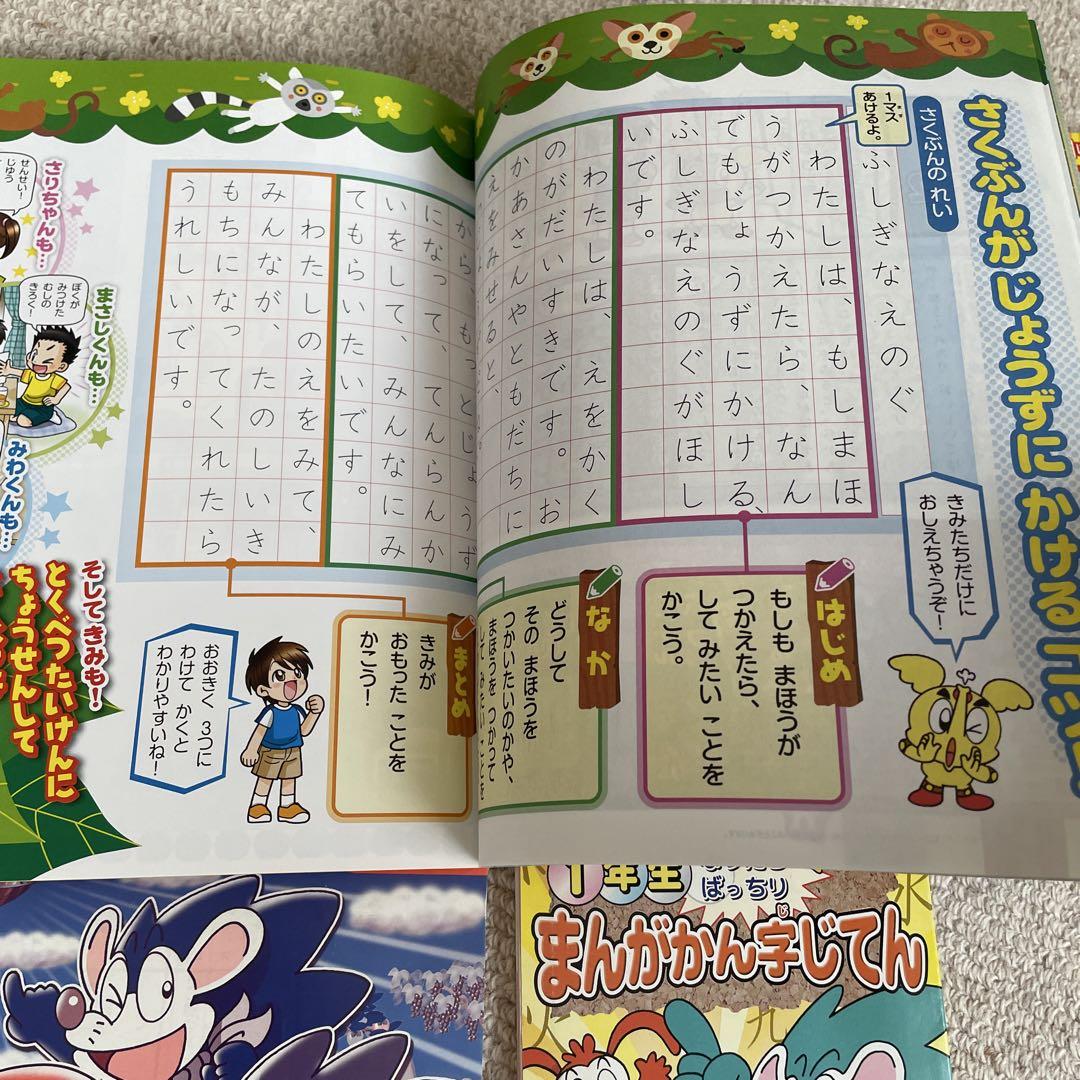 さくぶんが じょうずに かける
さくぶんの れい
1マス
あけるよ。
ふしぎなえのぐ
わたしは、もしまほ
うがつかえたら、なん
でもじょうずにかける、
ふしぎなえのぐがほし
いです。
わたしは、えをかく
のがだいすきです。お
かあさんやともだちに
えをみせると、
もっとじょうず
になって、てんらんか
いをして、みんなにみ
てもらいたいです。
わたしのえをみて、
みんなが、たのしいき
もちになってくれたら
うれしいです。
きみたちだけに
おしえちゃうぞ!
はじめ
もしも まほうが
つかえたら、
して みたい ことを
かこう。
なか
どうして
その まほうを
つかいたいのかや、
まほうを つかって
して みたい ことを
まとめ
きみが
おもった ことを
かこう!
おおきく 3つに
わけて かくと
わかりやすいね!
せんせい!
じゆう
さりちゃんも…
ぼくが
みつけた
むしの
きろく!
まさしくんも…
みわくんも…
そして きみも!
とくべつたいけんに
ちょうせんして
1年生
ばっちり
まんがかん字じてん
じ
水
火
九